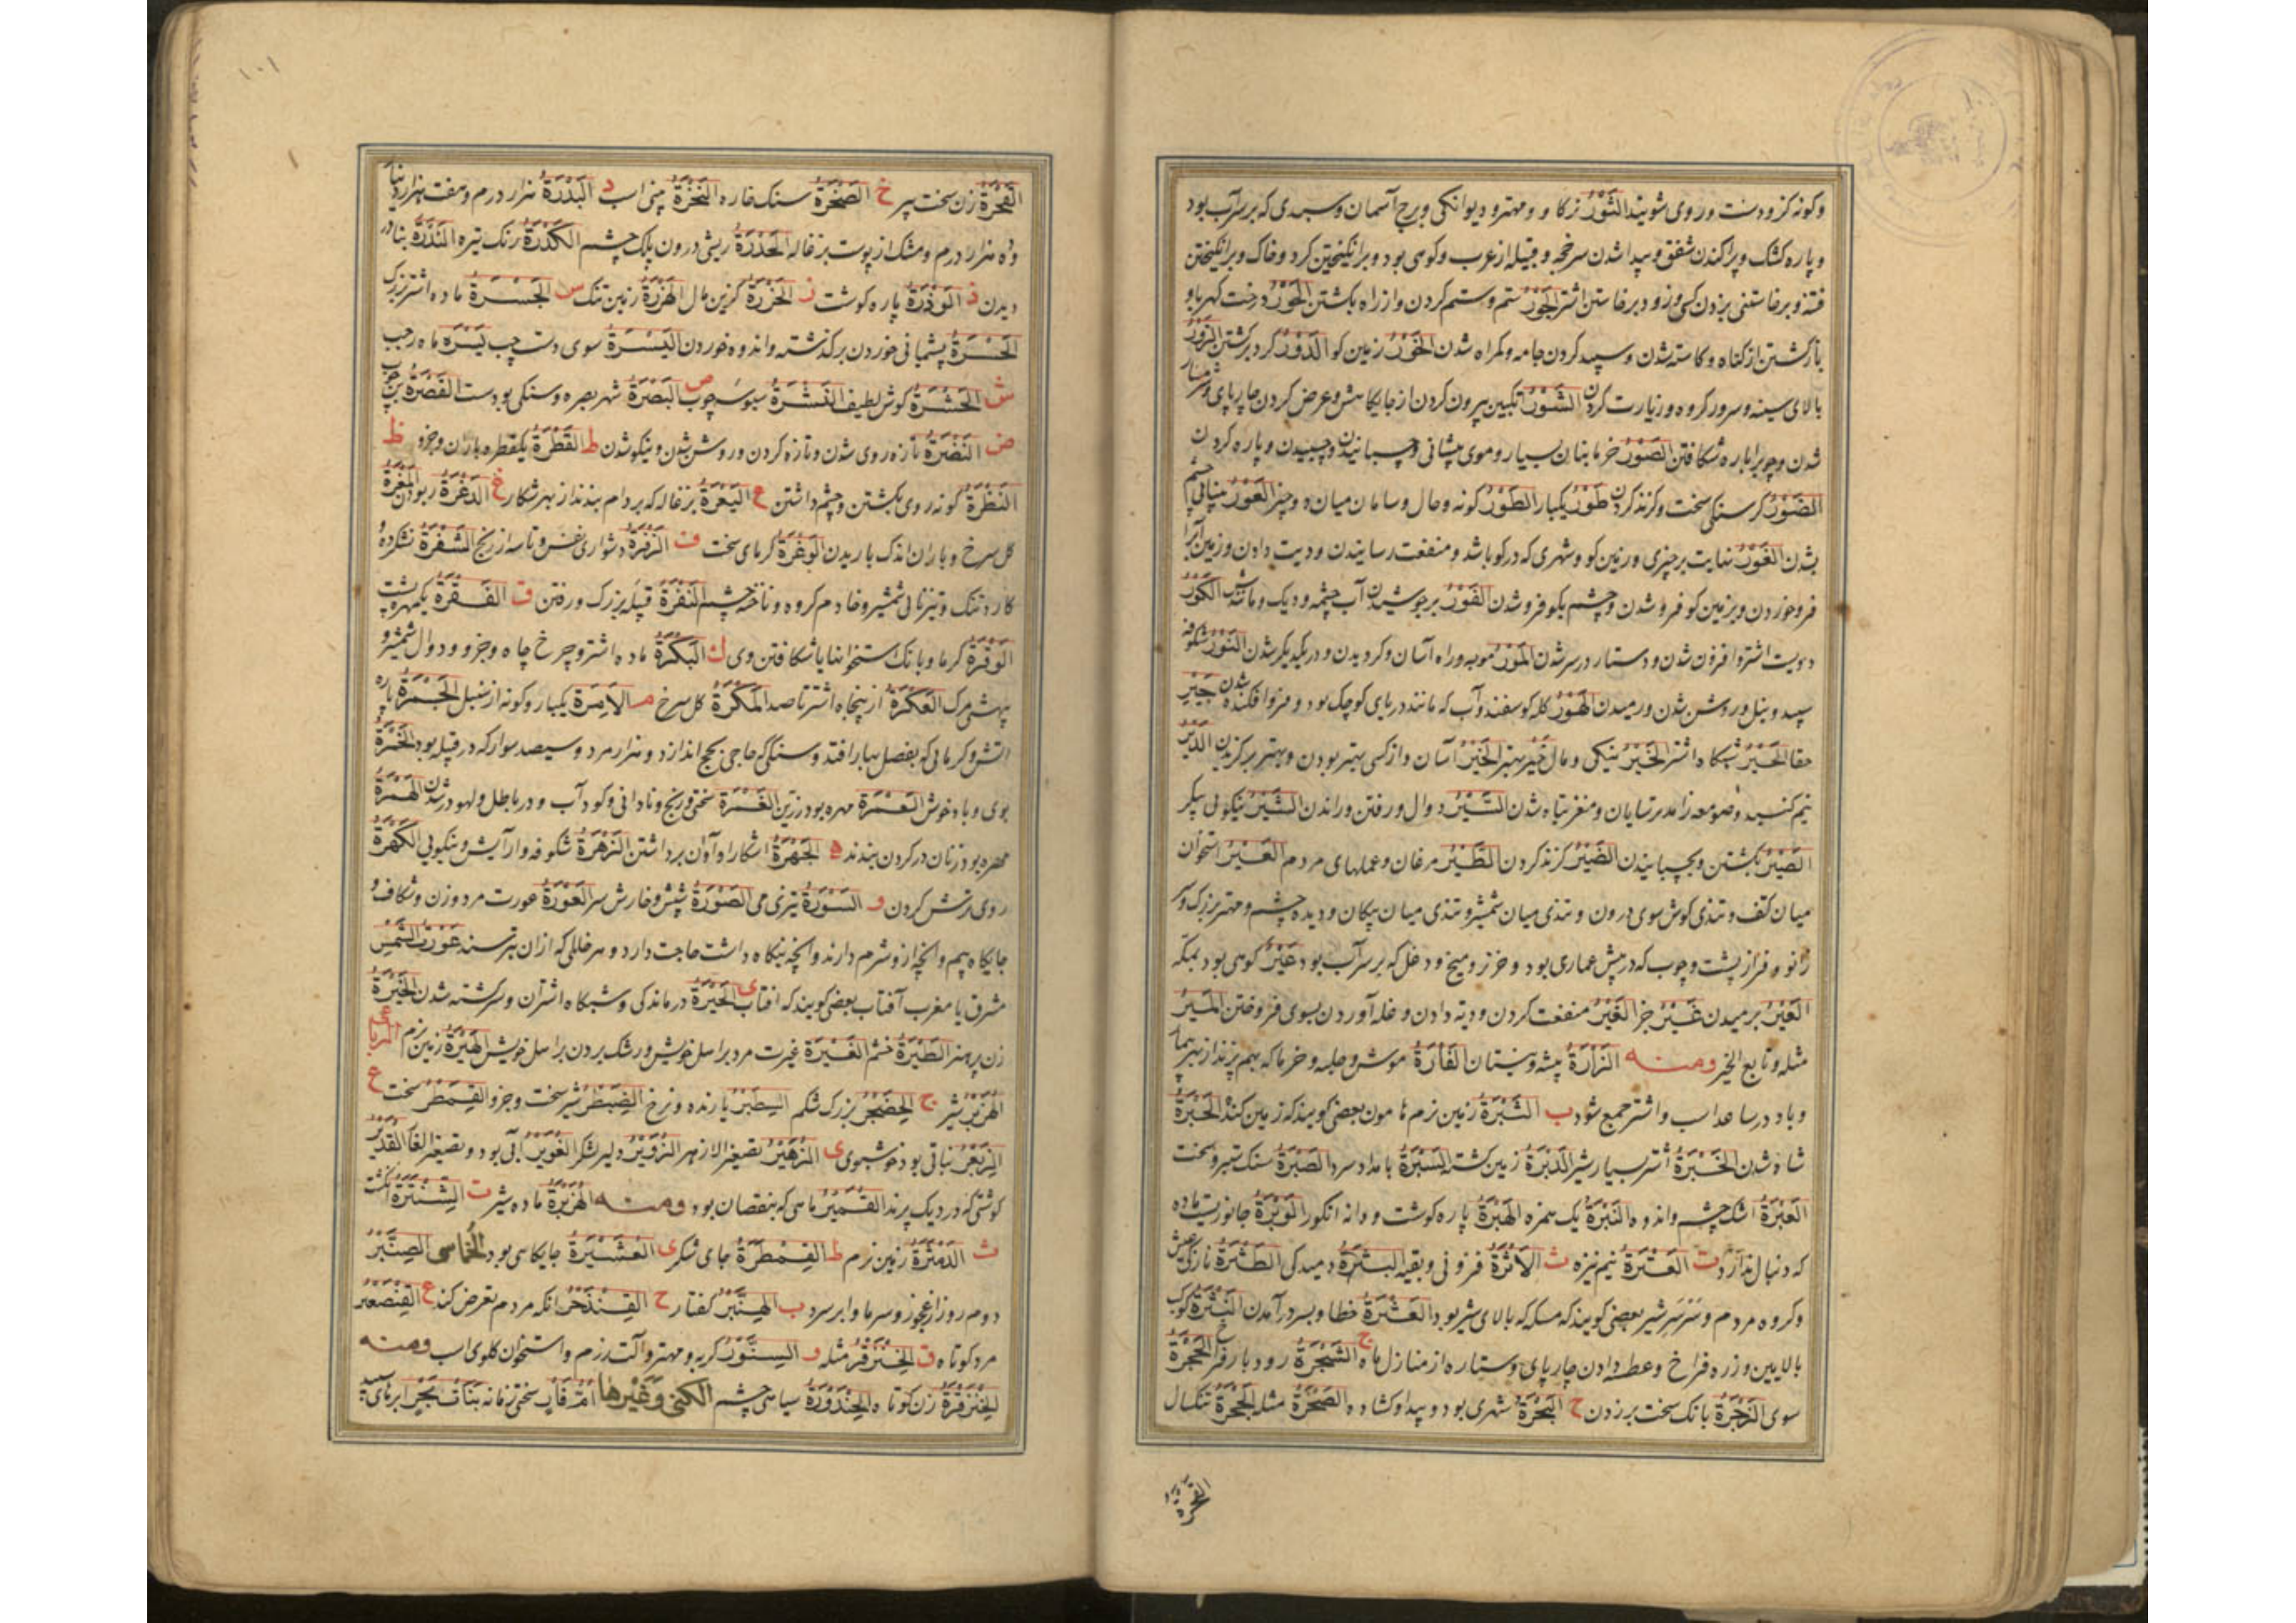 وکونه کردوست و روی شویند الثَّوْرُ نرکاو و مهتر و دیوانکی و برج آسمان و سبدی که بر سر آب بود
و پاره کشک و پراکندن شفق و پیدا شدن سرخجه و قبیله از عرب و کوهی بود و برانکیختن کرد و خاک و برانکیختن
فتنه و برخاستن اشتر الجَوْرُ ستم و ستم کردن و از راه بکشتن الحَوْرُ درخت کهربا و
بازکشتن از کناه و کاسته شدن و سپید کردن جامه و کمراه شدن الخَوْرُ زمین کو الدَّوْرُ کرد برکشتن الزَّوْرُ
بالای سینه و سرور کروه و زیارت کردن الشَّوْرُ انکبین بیرون کردن از جایکاهش و عرض کردن چارپای و شرمسار
شدن و چوبرا باره شکافتن الصَّوْرُ خرما بنان بسیار و موی پیشانی و چسبانیدن و چسبیدن و پاره کردن
الضَّوْرُ کرسنکی سخت و کزند کردن طَوْرٌ یکبار الطَّوْرُ کونه و حال و سامان میان دو چیز العَوْرُ بینایی چشم
بشدن الغَوْرُ نهایت هر چیزی و زمین کو و شهری که در کو باشد و منفعت رسانیدن و دیت دادن و زمین آبرا
فروخوردن و بزمین کو فرو شدن و چشم بکو فرو شدن الفَوْرُ برجوشیدن آب چشمه و دیک و مانندش الکَوْرُ
دویست اشتر و افزون شدن و دستار در سر شدن المَوْرُ موبه و راه آسان و کردیدن و در یکدیکر شدن النَّوْرُ شکوفه
سپید و نیل و روشن شدن و رمیدن الهَوْرُ کله کوسفند و آب که مانند دریای کوچک بود و فروافکنده شدن جَیْرِ
حقا الحَیْرُ شبکاه اشتر الخَیْرُ نیکی و مال خَیْرٌ بهتر الخَیْرُ آسان و از کسی بهتر بودن و بهتر برکزیدن الدَّیْرُ
نیم کنبد و صومعه زاهد ترسایان و مغز تباه شدن السَّیْرُ دوال و رفتن و راندن الشَّیْرُ نیکویی پیکر
الصَّیْرُ بکشتن و بچسبانیدن الضَّیْرُ کزند کردن الطَّیْرُ مرغان و عملهای مردم العَیْرُ استخوان
میان کتف و تندی کوش سوی درون و تندی میان شمشیر و تندی میان پیکان و دیده چشم و مهتر بزرک و سر
زانو و فراز پشت و چوب که در پیش عماری بود و خر نر و میخ و دخل که بر سر آب بود عَیْرٌ کوهی بود بمکه
العَیْرُ برمیدن غَیْرٌ جز الغَیْرُ منفعت کردن و دیه دادن و غله آوردن بسوی فروختن المَیْرُ
مثله و تابع الخیر ومنـه الزَّارَةُ بیشه و نیستان الفَارَةُ موش و حلبه و خرما که بهم پزند از بهر بیمار
و باد در ساعد اسب و اشتر جمع شود ب الثَّبْرَةُ زمین نرم نا مون بعضی کویند که زمین کند الحَبْرَةُ
شاد شدن الخَبْرَةُ اشتر بسیار شیر الدَّبْرَةُ زمین کشته السَّبْرَةُ بامداد سرد الصَّبْرَةُ سنک ستبر و سخت
العَبْرَةُ اشک چشم و اندوه النَّبْرَةُ یک همزه الهَبْرَةُ پاره کوشت و دانه انکور الوَبْرَةُ جانوریست ماده
که دنبال ندارد ت العَتْرَةُ نیم نیزه ث الاَثْرَةُ فزونی و بقیه البَثْرَةُ دمیدکی الطَّثْرَةُ تازکی عیش
و کروه مردم و سر شیر بعضی کویند که مسکه که بالای شیر بود العَثْرَةُ خطا و بسر درآمدن النَّثْرَةُ کوکب
بالابین و زره فراخ و عطسه دادن چارپای و ستاره از منازل ماه ج الشَّجْرَةُ رودبار فراخ الحَجْرَةُ
سوی الزَّجْرَةُ بانک سخت بر زدن ح البَحْرَةُ شهری بود و پیدا و کشاده الصَّحْرَةُ مثله الجَحْرَةُ تنکسال
القَحْرَةُ
۱۰۱
القَحْرَةُ زن سخت پیر خ الصَّخْرَةُ سنک خاره النَّخْرَةُ بینی اسب د البَدْرَةُ هزار درم و هفت هزار دینار
و ده هزار درم و مشک از پوست بزغاله الحَدْرَةُ ریشی درون پلک چشم الکَدْرَةُ رنک تیره النَّدْرَةُ بنادر
دیدن ذ الوَذْرَةُ پاره کوشت ز الخَزْرَةُ کزین مال الهَزْرَةُ زمین تنک س الجَسْرَةُ ماده اشتر بزرک
الحَسْرَةُ پشیمانی خوردن برکذشته و اندوه خوردن الیَسْرَةُ سوی دست چپ یَسْرَةً ماه رجب
ش الحَشْرَةُ کوش لطیف القَشْرَةُ سبوسه چوب ص البَصْرَةُ شهر بصره و سنکی بود سست القَصْرَةُ بن چوب
ض النَّضْرَةُ تازه روی شدن و تازه کردن و روشن شدن و نیکو شدن ط القَطْرَةُ یکقطره باران و جز او ظ
النَّظْرَةُ کونه روی بکشتن و چشم داشتن ع الیَعْرَةُ بزغاله که بر دام بندند از بهر شکار غ الدَّغْرَةُ ربودن المَغْرَةُ
کل سرخ و باران اندک باریدن الوَغْرَةُ کرمای سخت ف الزَّفْرَةُ دشواری نفس و تاسه از رنج الشَّفْرَةُ نشکرده
کارد تنک و تیزنای شمشیر و خادم کروه و ناخنه چشم النَّفْرَةُ قبیله بزرک و رفتن ق الفَقْرَةُ یکمهره پشت
الوَقْرَةُ کرما و بانک استخوانها یا شکافتن وی ک البَکْرَةُ ماده اشتر و چرخ چاه و جز و دوال شمشیر و
بهشتی مرک العَکْرَةُ از پنجاه اشتر تا صد المَکْرَةُ کل سرخ م الاَمْرَةُ یکبار و کونه از سنبل الجَمْرَةُ پاره
اتش و کرمایی که بفصل بهار افتد و سنکی که حاجی بحج اندازد و هزار مرد و سیصد سوار که در قبیله بود الخَمْرَةُ
بوی و باد خوش العَمْرَةُ مهره بود زرین الغَمْرَةُ سختی و رنج و نادانی و کود آب و در باطل و لهو در شدن الهَمْرَةُ
مهره بود زنان در کردن بندند ه الجَهْرَةُ اشکارا و آواز برداشتن الزَّهْرَةُ شکوفه و آرآیش و نیکویی الکَهْرَةُ
روی ترش کردن و السَّوْرَةُ تیزی می الصَّوْرَةُ شپش و خارش سر العَوْرَةُ عورت مرد و زن و شکاف و
جایکاه بیم و انچه ازو شرم دارند و انچه بنکاه داشت حاجت دارد و هر خللی که ازان بترسند عَوْرَتَا الشَّمْسِ
مشرق یا مغرب آفتاب بعضی کویند که افتاب ی الحَیْرَةُ درماندکی و شبکاه اشتران و سرکشته شدن الخَیْرَةُ
زن پرهنر الطَّیْرَةُ خشم الغَیْرَةُ غیرت مرد بر اهل خویش و رشک بردن بر اهل خویش الهَیْرَةُ زمین نرم الرباعی
الهِزَبْرُ شیر ج الحِضَجْرُ بزرک شکم السِبَطْرُ یازنده و نرخ الضِبَطْرُ شیر سخت و جز و القِمَطْرُ سخت ع
الزَّبْعَرُ نباتی بود خوشبوی ی الزُّهَیْرُ تصغیر الازهر الزُّوَیْرُ دلیر لشکر الغُوَیْرُ آبی بود و تصغیر الغار القَدِیرُ
کوشتی که در دیک پزند القُمَیْرُ ماهی که بنقصان بود ومنـه الهِزَبْرَةُ ماده شیر ت الشُّنْتَرَةُ انکشت
ث الدَّمْثَرَةُ زمین نرم ط القِمَطْرَةُ جای شکر ی العُشَیْرَةُ جایکاهی بود الخُماسی الصِنَّبْرُ
دوم روز از عجوز و سرما و ابر سرد ب الهِنَّبْرُ کفتار ح القِنْذَحْرُ انکه مردم تعرض کند ع القِنْصَعْرُ
مرد کوتاه ق الخِنْزَقْرُ مثله و السِنَّوْرُ کربه و مهتر و آلت رزم و استخوان کلوی اسب ومنـه
الخِنْزَقْرَةُ زن کوتاه الحِنْدَوْرَةُ سیاهی چشم الکنی وغیرها اُمُّ قَارٍ سختی زمانه بَنَاتُ بَحْرٍ ابرهای سپید